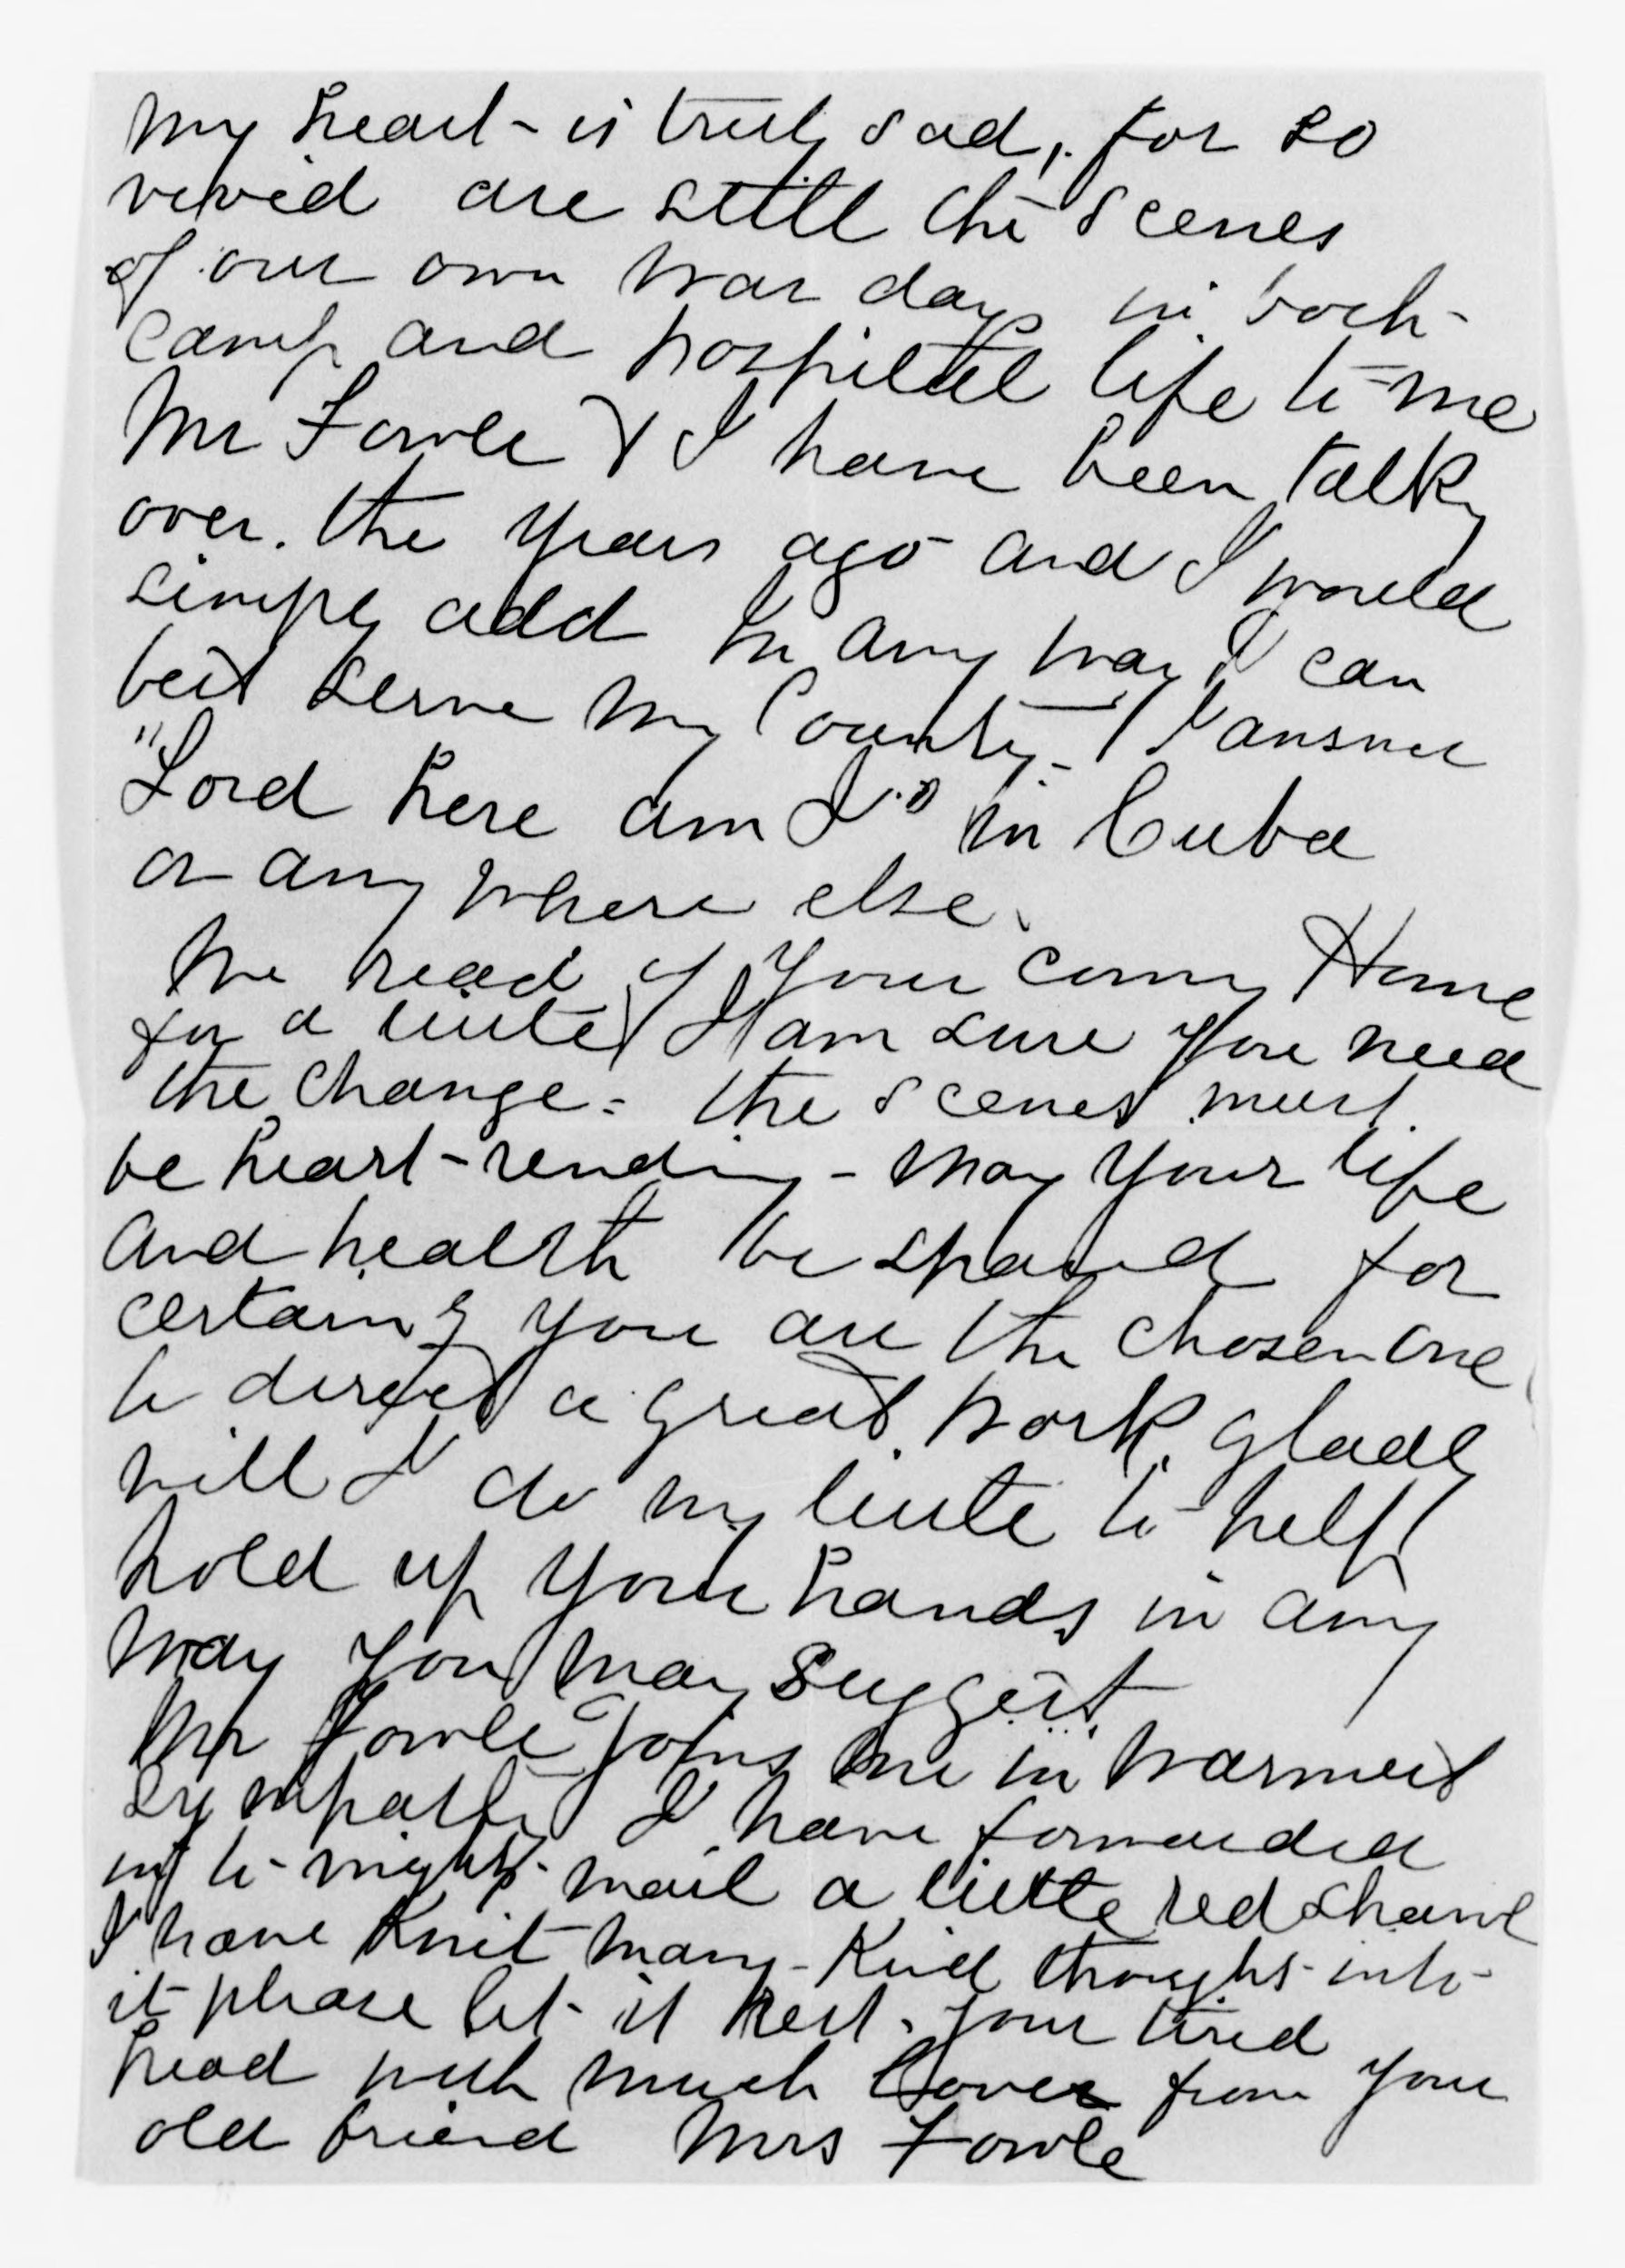 My heart - is truly sad, for so
vivid are still the scenes
of our own war days in both -
camp and hospital life to - me
Mr Fowle & I have been talkg
over. the years ago and I would
simply add In any way I can
best serve my Country - I answer
"Lord here am I." in Cuba
or any where else.
We read of your coming Home
for a little I am sure you need
the change - the scenes must
be heart-rending - may your life
and health be spared for
certainly you are the chosen one
to direct a great work. gladly
will I do my little to - help
hold up your hands in any
way you may suggest.
Mr Fowle joins me in warmest
sympathy I have forwarded
in to-night's - mail a little red shawl
I have knit many - kind thoughts - into -
it - please let - it rest. your tired
head with much love from your
old friend Mrs Fowle